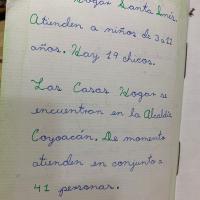 Hogar Santa Inés.
Atienden a niños de 3 a 12
años. Hay 19 chicos.
Las Casas Hogar se
encuentran en la Alcaldía
Coyoacán. De momento
atienden en conjunto a
41 personas.